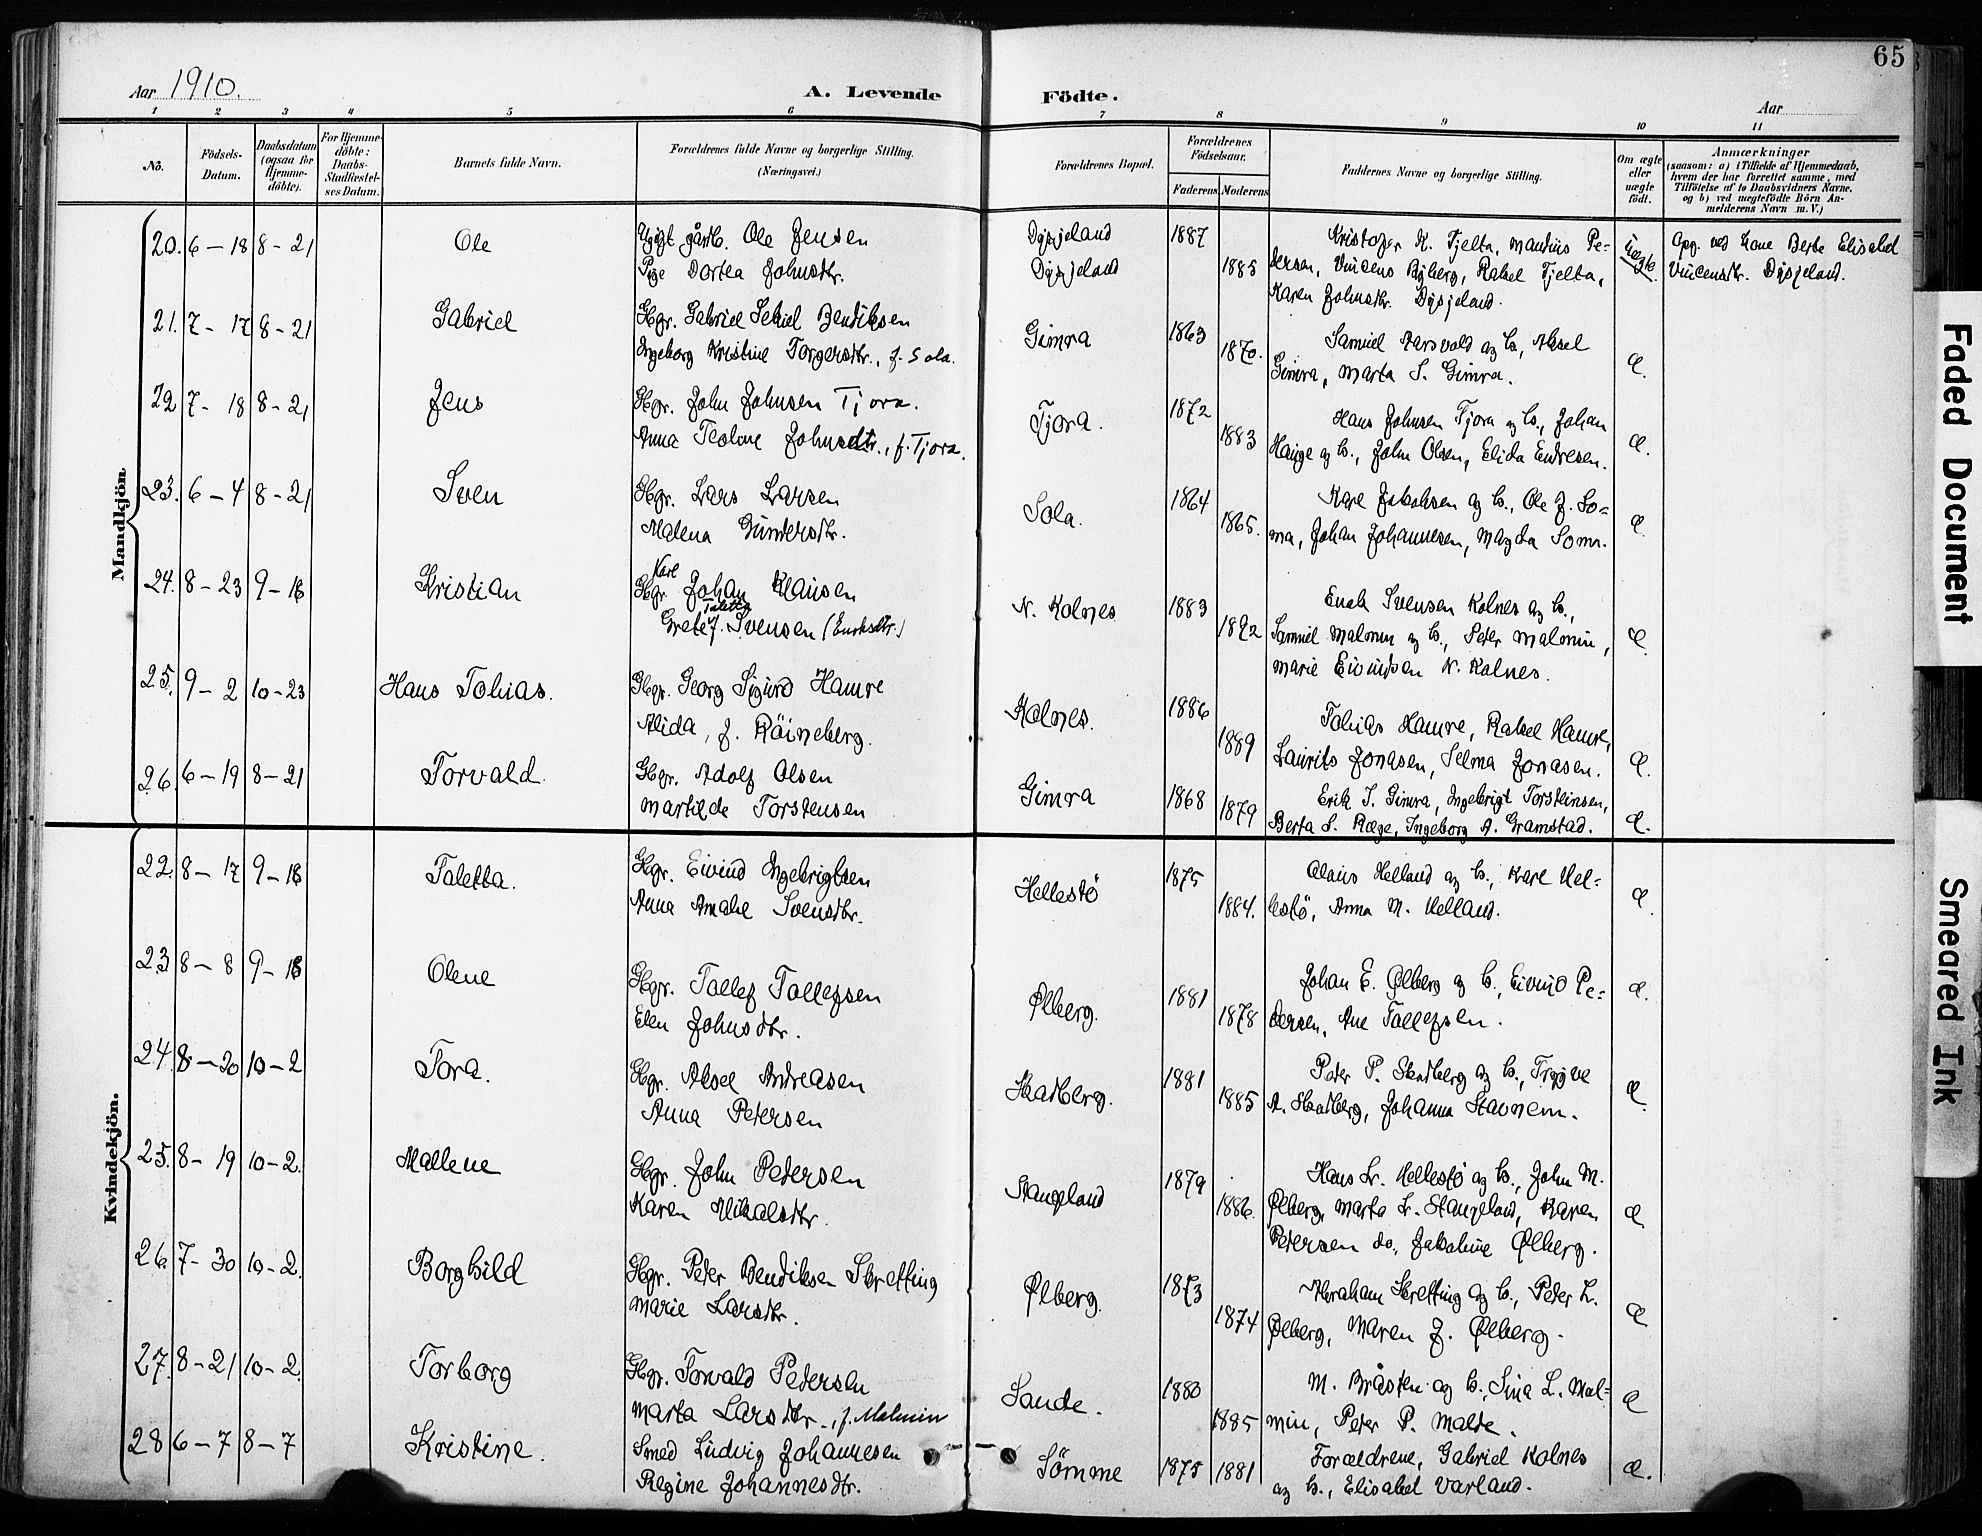 65
Aar 1910.
A. Levende Födte.
Aar
1 2 3 4 5 6 7 8 9 10 11
No.
Födsels-Datum.
Daabsdatum (ogsaa for Hjemmedöbte).
For Hjemmedöbte: Daabs-Stadfæstelses Datum.
Barnets fulde Navn.
Forældrenes fulde Navne og borgerlige Stilling.
(Næringsvei.)
Forældrenes Bopæl.
Forældrenes Födselsaar.
Faderens Moderens
Faddernes Navne og borgerlige Stilling.
Om ægte eller uægte födt.
Anmærkninger
(saasom: a) i Tilfælde af Hjemmedaab,
hvem der har forrettet samme, med
Tilföielse af to Daabsvidners Navne.
og b) ved uægtefödte Börn An-
melderens Navn m. V.)
Mandkjön.
20. 6-18 8-21 Ole
Ole Jensen
Pige Dortea Johnsdtr.
Dysjeland
Dysjeland
1887 1885
Kristofer K. Tjelta, Mandius Pe=
dersen, Vincens Byberg, Rakel Tjelta,
Karen Johnsdtr. Dysjeland.
Uægte.
Opg. ved Berte Elisabet
Vincensdtr. Dysjeland.
21. 7-17 8-21 Gabriel
Gbr. Gabriel Bendiksen
Ingeborg Kristine Torgersdtr., f. Sola.
Gimra
1863 1870.
Samuel Aarsvold og h., Aksel
Gimra, Marta S. Gimra.
Æ.
22 7-18 8-21 Jens
Gbr. John Johnsen Tjora.
Anna Teoline Johnsdtr., f. Tjora.
Tjora.
1872 1883
Hans Johnsen Tjora og h., Johan
Hauge og h., John Olsen, Elida Endresen.
Æ.
23. 6-4 8-21 Sven
Gbr. Lars Larsen
Malena Gundersdtr.
Sola.
1864 1865.
Kare Jakobsen og h., Ole J. So=
ma, Johan Johannesen, Magda Soma.
Æ.
24. 8-23 9-18 Kristian
Karl
Gbr. Johan Klausen
Taletta
Grete f. Svensen (Enoksdtr.)
N. Kolnes
1883 1892
Enok Svensen Kolnes og h.,
Samuel Malmin og h., Peter Malmin,
Marie Eivindsen N. Kolnes.
Æ.
25. 9-2 10-23 Hans Tobias.
Gbr. Georg Sigurd Hamre
Alida, f. Röineberg.
Kolnes.
1886 1889
Tobias Hamre, Rakel Hamre,
Laurits Jonasen, Selma Jonasen.
Æ.
26. 6-19 8-21 Torvald.
Gbr. Adolf Olsen
Martilde Torstensen
Gimra
1868 1879
Erik T. Gimra, Ingebrigt Torsteinsen,
Berta S. Ræge, Ingeborg A. Gramstad.
Æ.
Kvindekjön.
22. 8-17 9-18 Taletta.
Gbr. Eivind Ingebrigtsen
Anna Amalie Svensdtr.
Hellestö
1875 1884.
Olaus Helland og h., Kare Hel=
lestö, Anna M. Helland.
Æ.
23 8-8 9-18 Olene
Gbr. Tollef Tollefsen
Elen Johnsdtr.
Ølberg.
1881 1878
Johan E. Ølberg og h., Eivind Pe=
dersen, Ane Tollefsen.
Æ.
24. 8-20 10-2 Tora.
Gbr. Aksel Andreasen
Anna Petersen
Skadberg.
1881 1885
Peter P. Skadberg og h., Trygve
A. Skadberg, Johanna Stavnem.
Æ.
25. 8-19 10-2. Mallene
Gbr. John Petersen
Karen Mikalsdtr.
Stangeland
1879 1886.
Hans Lr. Hellestö og h., John M.
Ølberg, Marta Lr. Stangeland, Karen
Petersen do, Jakobine Ølberg.
Æ.
26. 7-30 10-2. Borghild
Gbr. Peter Bendiksen Skretting
Marie Larsdtr.
Ølberg.
1873 1874
Abraham Skretting og h., Peter L.
Ølberg, Maren J. Ølberg.
Æ
27. 8-21 10-2. Torborg
Gbr. Torvald Pedersen
Marta Larsdtr., f. Malmin
Sande.
1880 1885
M. Bråsten og h., Sina L. Mal=
min, Peter P. Malde.
Æ
28 6-7 8-7 Kristine.
Smed Ludvig Johannesen
Regine Johannesdtr.
Sömme
1875 1881
Forældrene, Gabriel Kolnes
og h., Elisabet Varland.
Æ.
Faded Document
Smeared Ink